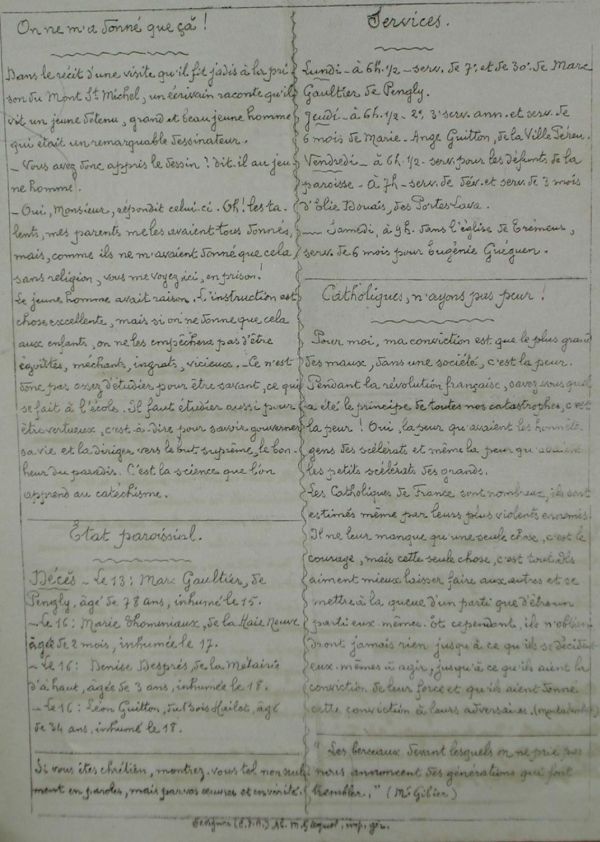 On ne m'a donné que ça !
Dans le récit d'une visite qu'il fit jadis à la pri
son du Mont St Michel, un écrivain raconte qu'il
vit un jeune détenu, grand et beau jeune homme
qui était un remarquable dessinateur.
- Vous avez donc appris le dessin ? dit-il au jeu
ne homme.
- Oui, Monsieur, répondit celui-ci. Oh ! les ta
lents, mes parents me les avaient tous donnés,
mais, comme ils ne m'avaient donné que cela
sans religion, vous me voyez ici, en prison !
Le jeune homme avait raison. L'instruction est
chose excellente, mais si on ne donne que cela
aux enfants, on ne les empêchera pas d'être
égoïstes, méchants, ingrats, vicieux. - Ce n'est
donc pas assez d'étudier pour être savant, ce qui
se fait à l'école. Il faut étudier aussi pour
être vertueux, c'est-à-dire pour savoir gouverner
sa vie et la diriger vers le but suprême, le bon-
heur du paradis. C'est la science que l'on
apprend au catéchisme.
État paroissial.
Décès - Le 13 : Marc Gaultier, de
Pengly. âgé de 78 ans, inhumé le 15.
- le 16 : Marie Thomeniaux, de la Haie Neuve
âgée de 2 mois, inhumée le 17.
- Le 16 : Denise Després, de la Métairie
d'à haut, âgée de 3 ans, inhumée le 18.
- Le 16 : Léon Guitton, du Bois Hailot, âgé
de 34 ans, inhumé le 18.
Si vous êtes chrétien, montrez-vous tel non seule
ment en paroles, mais par vos œuvres et en vérité.
Services.
Lundi - à 6h. 1/2 - serv. de 7e et de 30e de Marc
Gaultier de Pengly.
Jeudi - à 6h. 1/2 - 2e, 3e serv. ann. et serv. de
6 mois de Marie-Ange Guitton, de la Ville Péheu.
Vendredi - à 6h. 1/2 - serv. pour les défunts de la
paroisse - à 7h - serv. de dév. et serv. de 3 mois
d'Elie Douais, des Portes-Lava.
Samedi, à 9h. dans l'église de Trémeur,
serv. de 6 mois pour Eugénie Guéguen.
Catholiques, n'ayons pas peur !
Pour moi, ma conviction est que le plus grand
des maux, dans une société, c'est la peur.
Pendant la révolution française, savez-vous quel
a été le principe de toutes nos catastrophes, c'est
la peur ! Oui, la peur qu'avaient les honnêtes
gens des scélérats et même la peur qu'avaient
les petits scélérats des grands.
Les Catholiques de France sont nombreux, ils sont
estimés même par leurs plus violents ennemis.
Il ne leur manque qu'une seule chose, c'est le
courage, mais cette seule chose, c'est tout. Ils
aiment mieux laisser faire aux autres et se
mettre à la queue d'un parti que d'être un
parti eux-mêmes. Et cependant, ils n'obtien
dront jamais rien jusqu'à ce qu'ils se décident
eux-mêmes à agir, jusqu'à ce qu'ils aient la
conviction de leur force et qu'ils aient donné
cette conviction à leurs adversaires. (Montalembert)
" Les berceaux devant lesquels on ne prie pas
nous annoncent des générations qui font
trembler. " (Mr Gibier)
imp. gér.